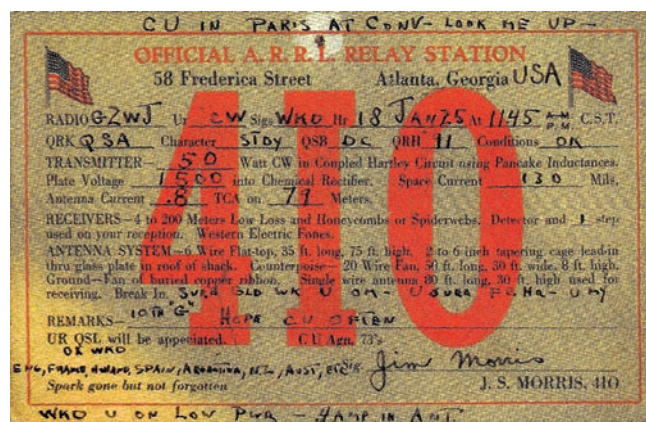 CU IN PARIS AT CONV- LOOK ME UP-
OFFICIAL A. R. R. L. RELAY STATION
58 Frederica Street Atlanta, Georgia USA
4IO
RADIO G2WJ Ur CW Sigs WKD Hr 18 JAN 25 At 1145 A.M. P.M. C.S.T.
QRK QSA Character STDY QSB DC QRH 91 Conditions OK
TRANSMITTER— 50 Watt CW in Coupled Hartley Circuit using Pancake Inductances.
Plate Voltage into Chemical Rectifier. Space Current 130 Mils.
Antenna Current TCA on 79 Meters.
RECEIVERS—4 to 200 Meters Low Loss and Honeycombs or Spiderwebs. Detector and 1 step
used on your reception. Western Electric Fones.
ANTENNA SYSTEM—6 Wire Flat-top, 35 ft. long, 75 ft. high. 2 to 6 inch tapering cage lead-in
thru glass plate in roof of shack. Counterpoise—20 Wire Fan, 50 ft. long, 30 ft. wide, 8 ft. high.
Ground—Fan of buried copper ribbon. Single wire antenna 80 ft. long, 30 ft. high used for
receiving. Break In. SURE GLD WK U OM- U SURE HR- U MY
REMARKS— 10TH "G" HOPE CU OFTEN
UR QSL will be appreciated. CU Agn, 73's
WKD
ENG, FRANCE, HOLLAND, SPAIN, ARGENTINA, N.Z., AUST, ETC Sig. Jim Morris
Spark gone but not forgotten J. S. MORRIS, 4IO
WKD U ON LOW PWR - AMP IN ANT.